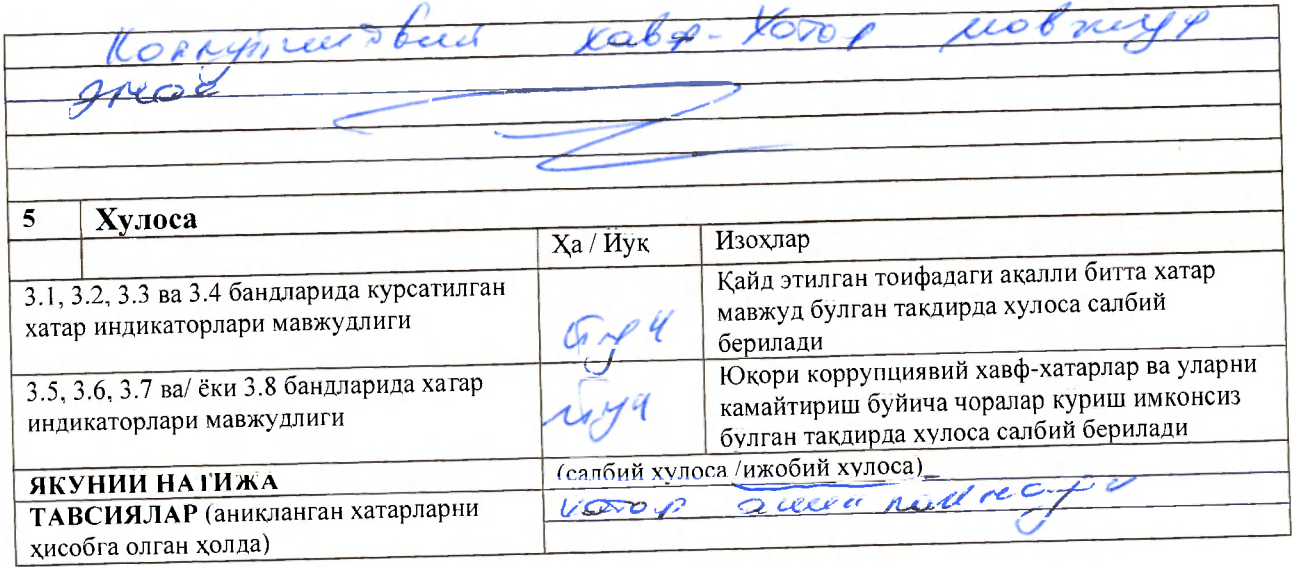 Коррупциявий хавф-хатар мавжуд
эмас
5 Хулоса
Ҳа / Йук Изоҳлар
3.1, 3.2, 3.3 ва 3.4 бандларида курсатилган
хатар индикаторлари мавжудлиги
йуқ
Қайд этилган тоифадаги ақалли битта хатар
мавжуд булган такдирда хулоса салбий
берилади
3.5, 3.6, 3.7 ва/ ёки 3.8 бандларида хатар
индикаторлари мавжудлиги
йуқ
Юқори коррупциявий хавф-хатарлар ва уларни
камайтириш буйича чоралар куриш имконсиз
булган такдирда хулоса салбий берилади
ЯКУНИЙ НАТИЖА
(салбий хулоса /ижобий хулоса)
ТАВСИЯЛАР (аниқланган хатарларни
ҳисобга олган ҳолда)
хатар